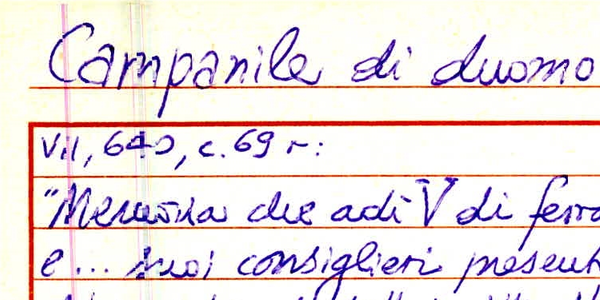 Campanile di duomo
Vil, 640, c. 69 r:
"Memoria che adì V di ferra
e... suoi consiglieri present